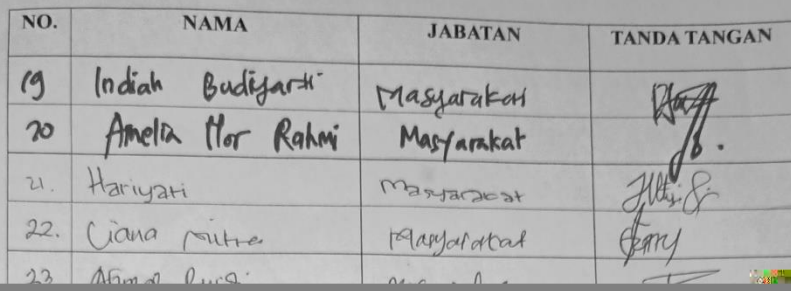 NO. NAMA JABATAN TANDA TANGAN
19 Indiah Budiyarti Masyarakat
20 Amelia Nor Rahmi Masyarakat
21. Hariyati Masyaracat
22. Ciana Mitra Masyarakat
23